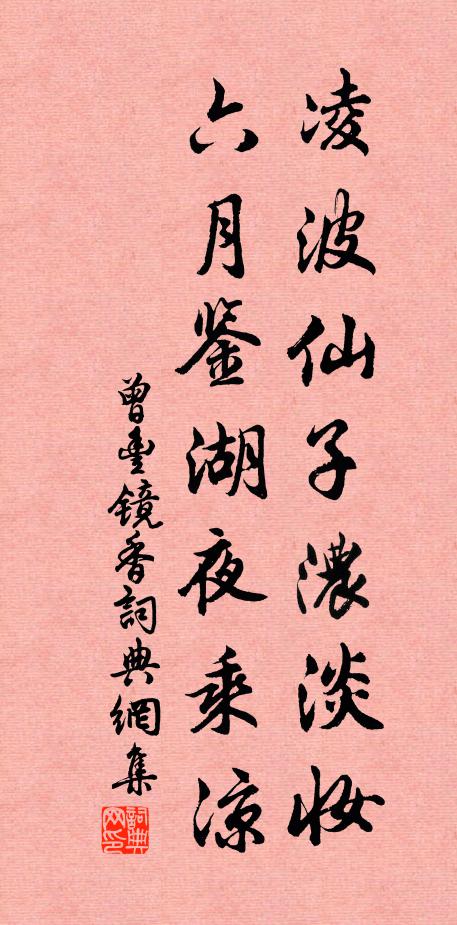 凌波仙子濃淡妝
六月鉴湖夜乘凉
曾丰鏡香詞典網集
詞典网印